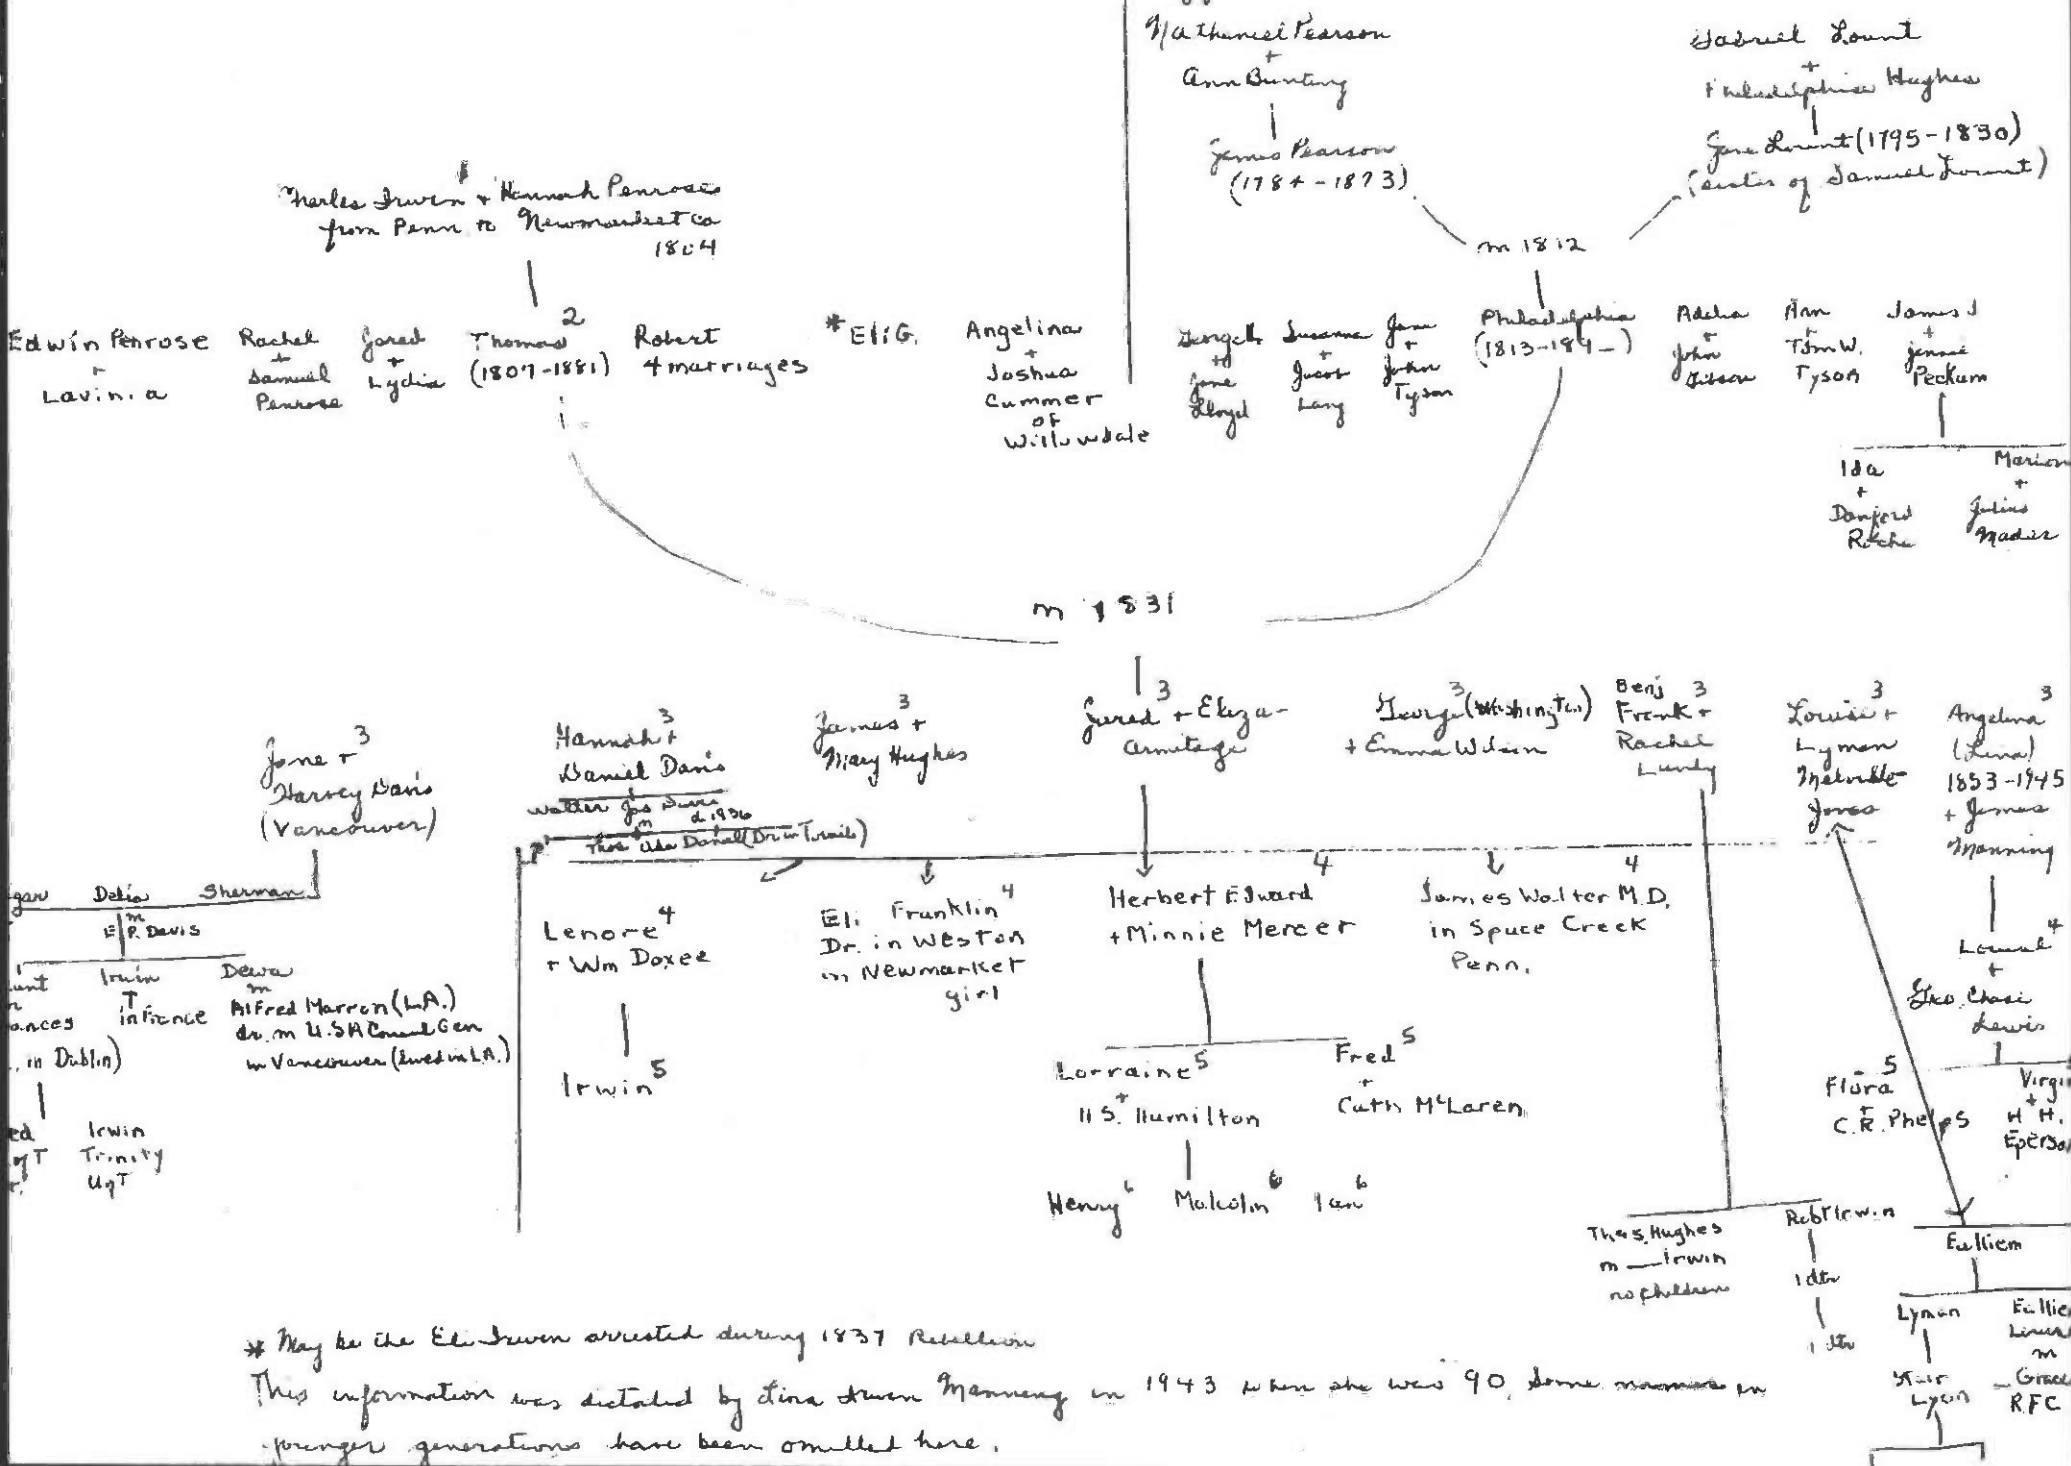 Nathaniel Pearson
+
Ann Bunting
James Pearson
(1784-1873)
Gabriel Lount
+
Philadelphia Hughes
Jane Lount (1795-1830)
(sister of Samuel Lount)
m 1812
Charles Irwin + Hannah Penrose
from Penn to Newmarket co
1804
Edwin Penrose
+
Lavinia
Rachel
+
Samuel
Penrose
Jared
+
Lydia
Thomas 2
(1807-1881)
Robert
4 marriages
* Eli G.
Angelina
+
Joshua
Cummer
of
Willowdale
George L
+
Jane
Lloyd
Susanna
+
Jacob
Lang
Jane
+
John
Tyson
Philadelphia
(1813-189_)
Adelia
+
John
Gibson
Ann
+
Tom W.
Tyson
James J
+
Jennie
Peckum
Ida
+
Danford
Roche
Marion
+
Julius
m 1831
Jane + 3
Harvey Davis
(Vancouver)
Hannah + 3
Daniel Davis
Walter Jas Davis
m d 1936
Thos Ada Daniel (Dr in
James 3 +
Mary Hughes
Jared 3 + Eliza-
Armitage
George 3 (Washington)
+ Emma Wilson
Benj
Frank + 3
Rachel
Lundy
Louise + 3
Lyman
Melville
Jones
Angelina 3
(Lina)
1853-1945
+ James
Manning
gar Delia Sherman
m
E P. Davis
unt
ances
, in Dublin)
Irwin
in France
Dewa
m
Alfred Marron (L.A.)
dr. m U.S.A Consul Gen
in Vancouver (lived in L.A.)
ed
Irwin
Trinity
U of T
Lenore 4
+ Wm Doxee
Irwin 5
Eli Franklin 4
Dr. in Weston
m Newmarket
girl
4
Herbert Edward
+ Minnie Mercer
Lorraine 5
+
H S. Hamilton
Fred 5
+
Cath McLaren
Henry 6 Malcolm 6 Ian 6
4
James Walter M.D.
in Spuce Creek
Penn.
4
+
Geo. Chase
Lewis
Flora 5
+
C.R. Phelps
Virgi
+
H H.
Eperso
Thos. Hughes
m — Irwin
no children
Robt Irwin
1 dtr
1 dtr
Eulliem
Lyman
Lyon
Eullie
m
Grace
RFC
* May be the Eli Irwin arrested during 1837 Rebellion
This information was dictated by Lina Irwin Manning in 1943 when she was 90. Some names in
younger generations have been omitted here.